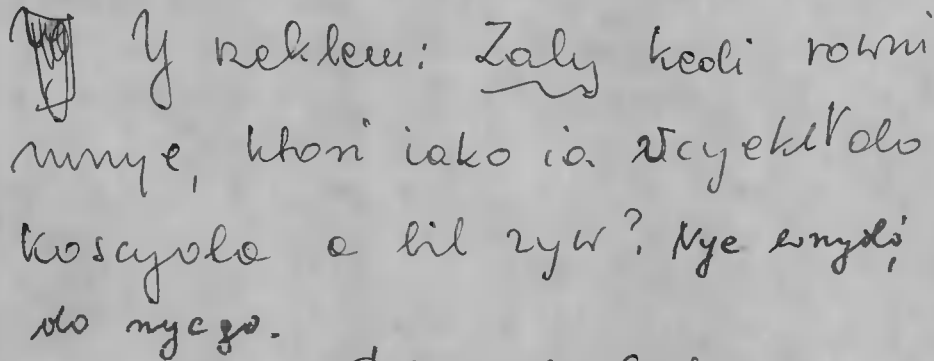 Y rzeklem: Zaly kedi rowni
mnye, ktori iako ia vcyekl do
koscyola a bil zyw? Nye wnydø
do nyego.